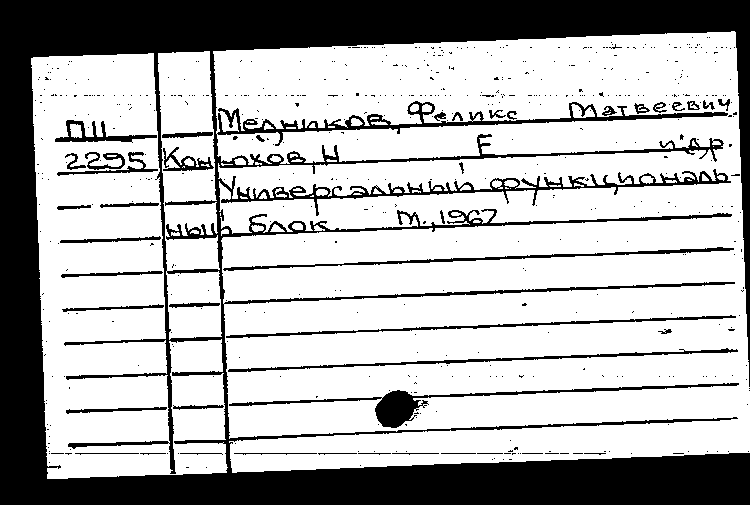 ПII Медников, Феликс Матвеевич
2295 Конюхов, Н Е и др.
Универсальный функциональ-
ный блок. М., 1967